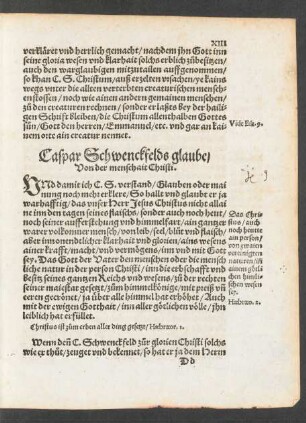 XIII
verkläret vnd herrlich gemacht / nachdem jhn Gott inn
seine gloria wesen vnd klarhait solchs erblich zůbesitzen /
auch den warglaubigen mitzutailen auffgenommen /
so khan C. S. Christum / auß erzelten vrsachen / ye kains
wegs vnter die allten verterbten creaturischen mensch-
en stossen / noch wie ainen andern gemainen menschen /
zů den creaturen rechnen / sonder er lasts bey der hailigen
Schrifft bleiben / die Christum allenthalben Gottes
sůn / Gott den herren / Emmanuel / etc. vnd gar an kai-
nem orte ain creatur nennet.
Vide Esa. 9.
Caspar Schwenckfelds glaube /
Von der menschait Christi.
VNd damit ich C. S. verstand / Glauben oder mai
nung noch mehr erklere / So hallt vnd glaubt er ja
warhafftig / das vnser Herr Jesus Christus nicht allai
ne inn den tagen seines flaischs / sonder auch noch heut /
noch seiner aufferstehung vnd himmelfart / ain gantzer
warer volkommner mensch / von leib / seel / blůt vnd flaisch /
aber inn onendtlicher klarhait vnd glorien / ains wesens
ainer krafft / macht / vnd vermögens / inn vnd mit Gott
sey. Das Gott der Vater den menschen oder die mensch
liche natur in der person Christi / inn die erbschafft vnd
Besitz seines gantzen Reichs vnd wesens / zů der rechten
seiner maiestat gesetzt / zům himmelkönige / mit preiß vñ
eeren gecrönet / ja über alle himmel hat erhöhet / Auch
mit der ewigen Gotthait / inn aller götlichen völle / jhn
leiblich hat erfüllet.
Das Chri-
stus / auch
noch heute
ain person /
von zwaien
verainigten
naturen / iñ
ainem göt-
lichen him̃-
lischen wesen
sey.
Hæbreor. 2.
Christus ist zům erben aller ding gesetzt / Hæbreor. 1.
Wenn deñ C. Schwenckfeld zůr glorien Christi solchs
wie er thůt / zeuget vnd bekennet / so hat er ja dem Herrn
Dd